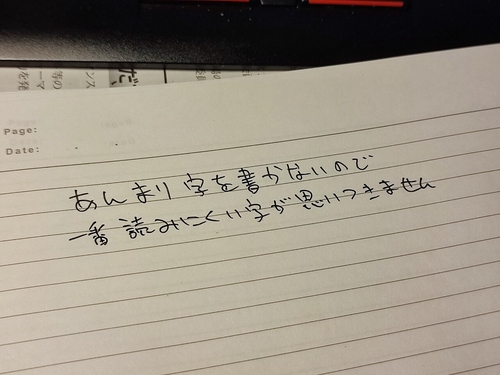 Page:
Date:
あんまり字を書かないので
一番読みにくい字が思いつきません